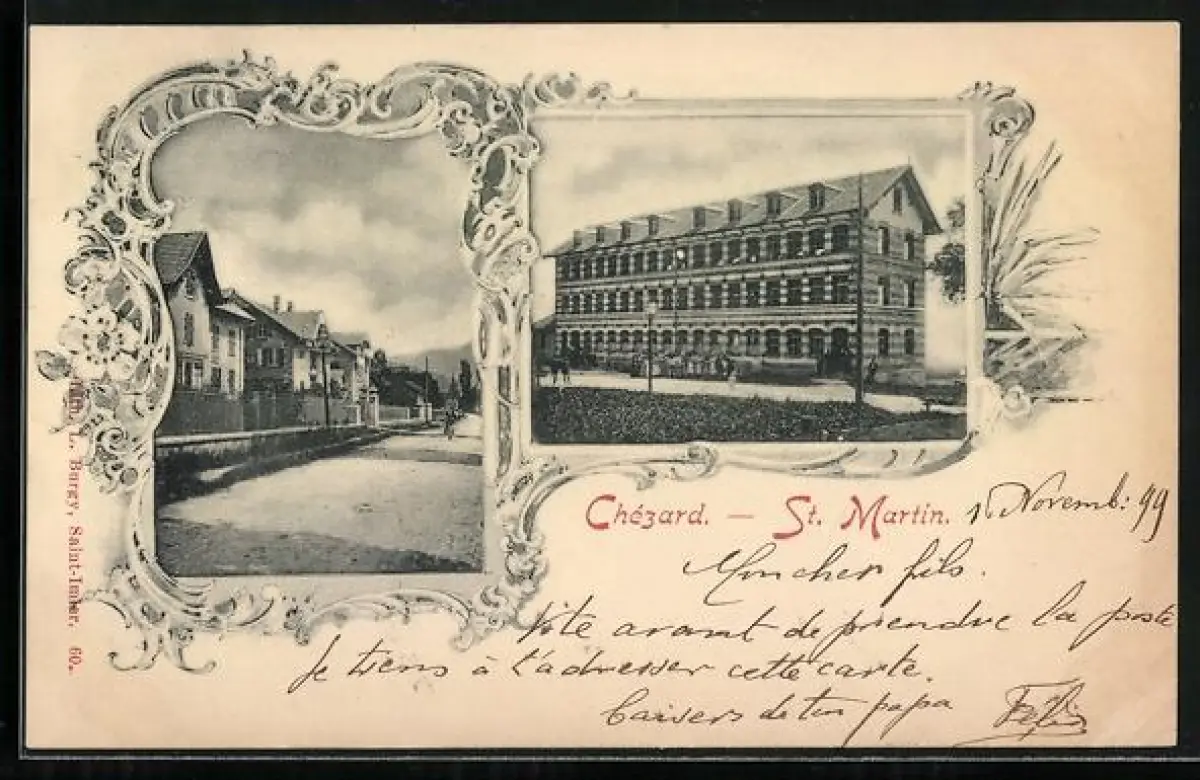 Chézard. — St. Martin. 1 Novemb: 99
Mon cher fils.
Vite avant de prendre la poste
Je tiens à t'adresser cette carte.
Baisers de ton papa
L. Burgy, Saint-Imier. 60.